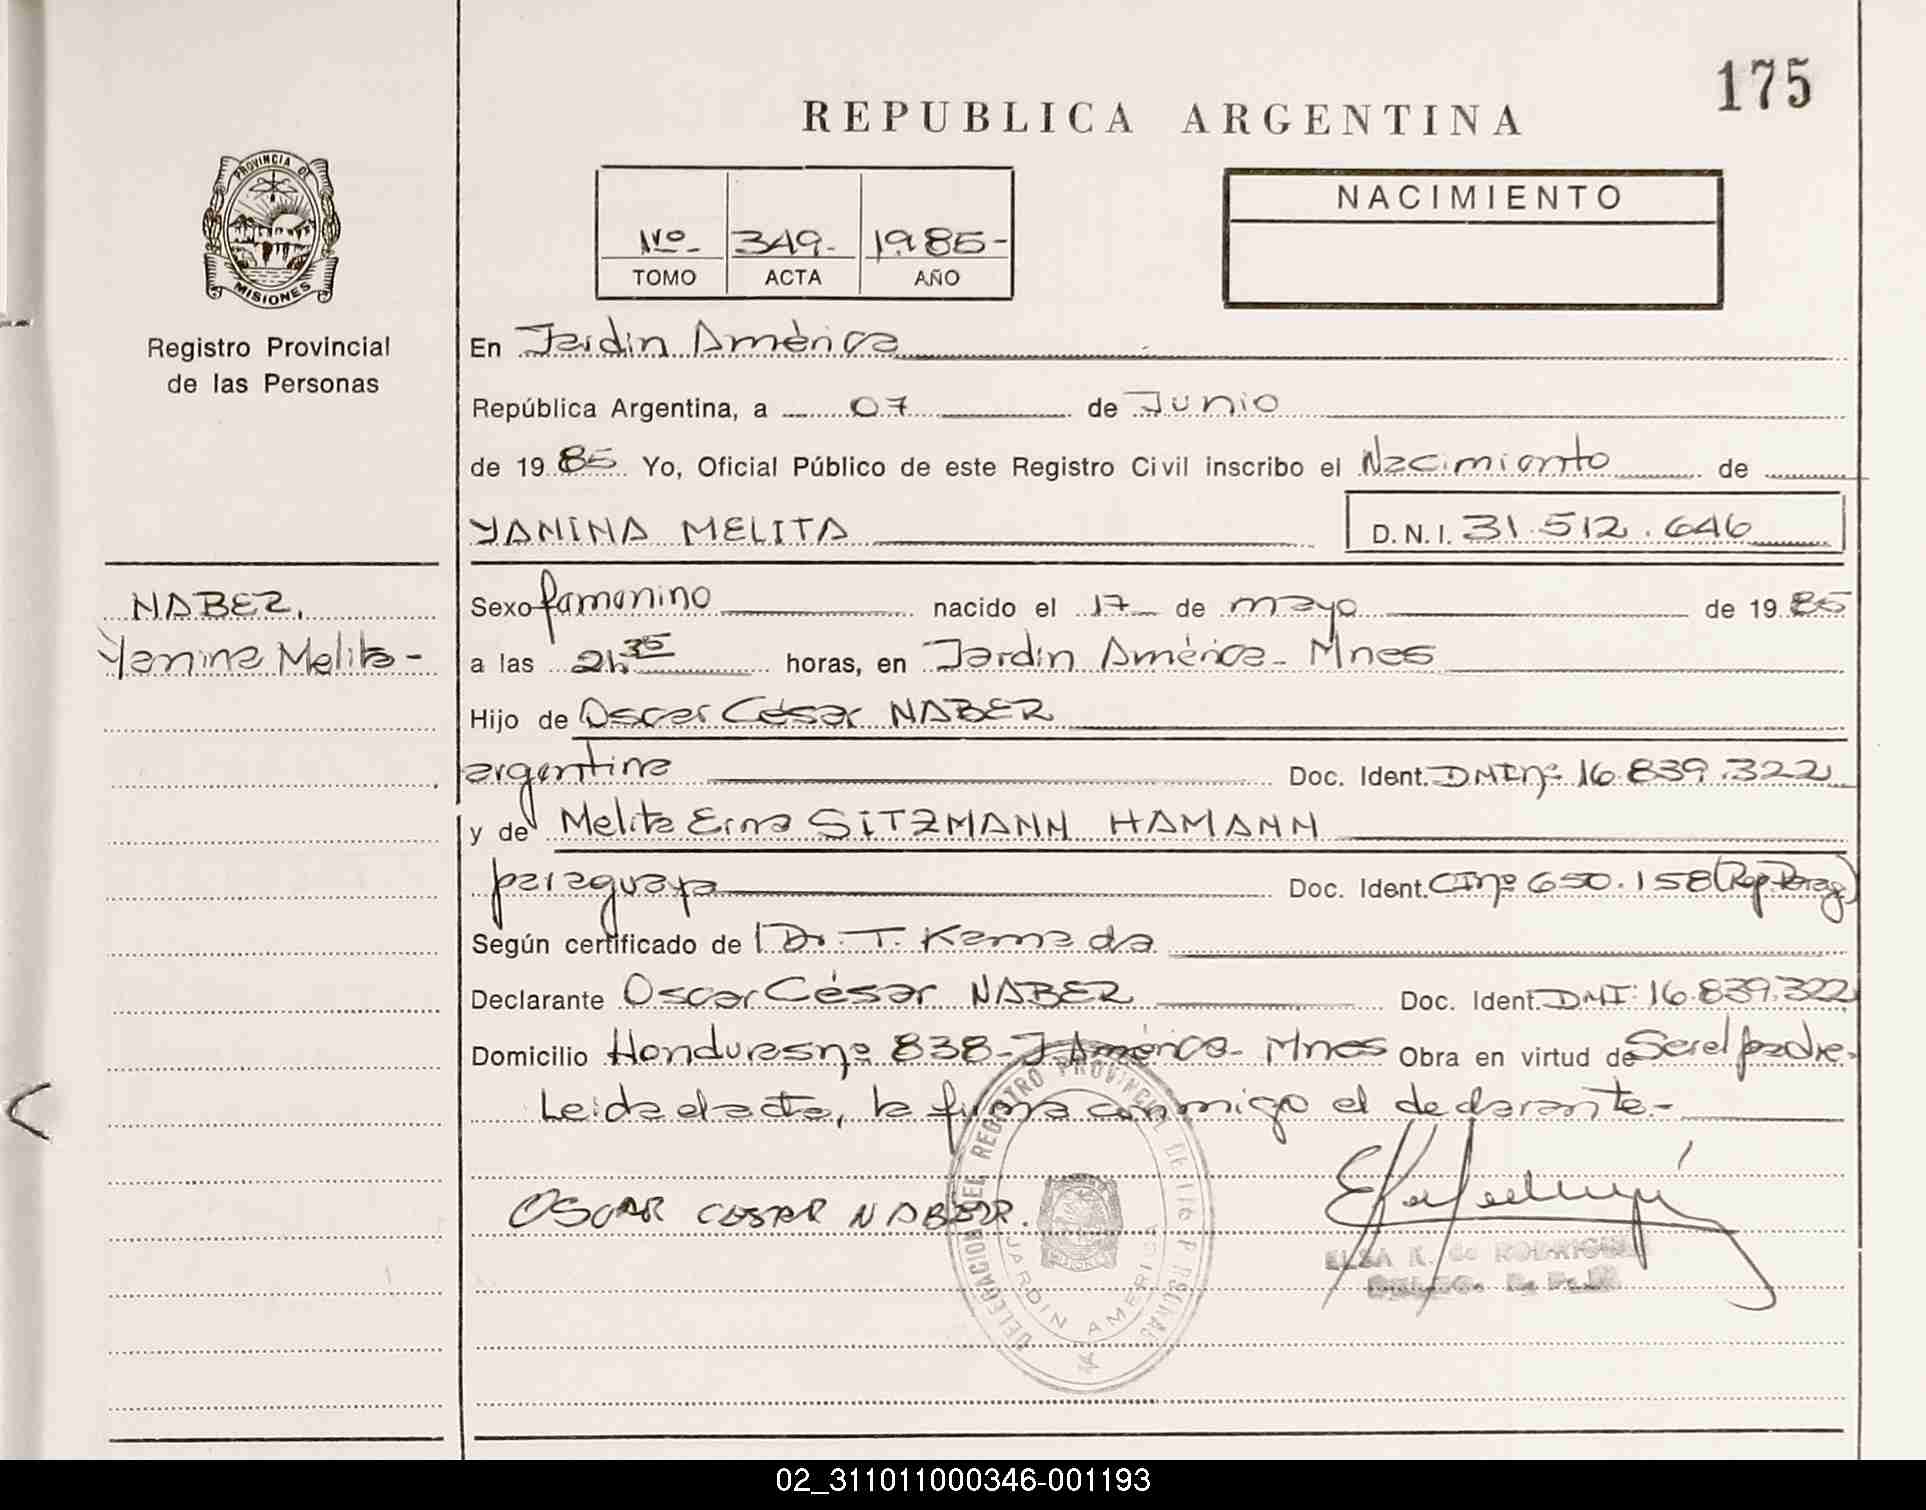 175
REPUBLICA ARGENTINA
PROVINCIA DE
MISIONES
Registro Provincial
de las Personas
Nº- 349- 1985-
TOMO ACTA AÑO
NACIMIENTO
En Jardin América
República Argentina, a 07 de Junio
de 1985 Yo, Oficial Público de este Registro Civil inscribo el Nacimiento de
YANINA MELITA D.N.I. 31.512.646
NABER,
Yanina Melita-
Sexo femenino nacido el 17 de mayo de 1985
a las 2h.35 horas, en Jardin América- Mnes
Hijo de Oscar César NABER
argentina Doc. Ident. DMI nº 16.839.322
y de Melita Erna SITZMANN HAMANN
paraguaya Doc. Ident. CI nº 650.158 (Rep. Parag)
Según certificado de Dr. T. Kamada
Declarante Oscar César NABER Doc. Ident. DMI: 16.839.322
Domicilio Honduras nº 838- J. América- Mnes Obra en virtud de Ser el padre-
Leida el acta, la firma conmigo el declarante.-
OSCAR CESAR NABER.
DELEGACION DEL REGISTRO PROVINCIAL DE LAS PERSONAS
JARDIN AMERICA
ELSA K. de RODRIGUEZ
02_311011000346-001193